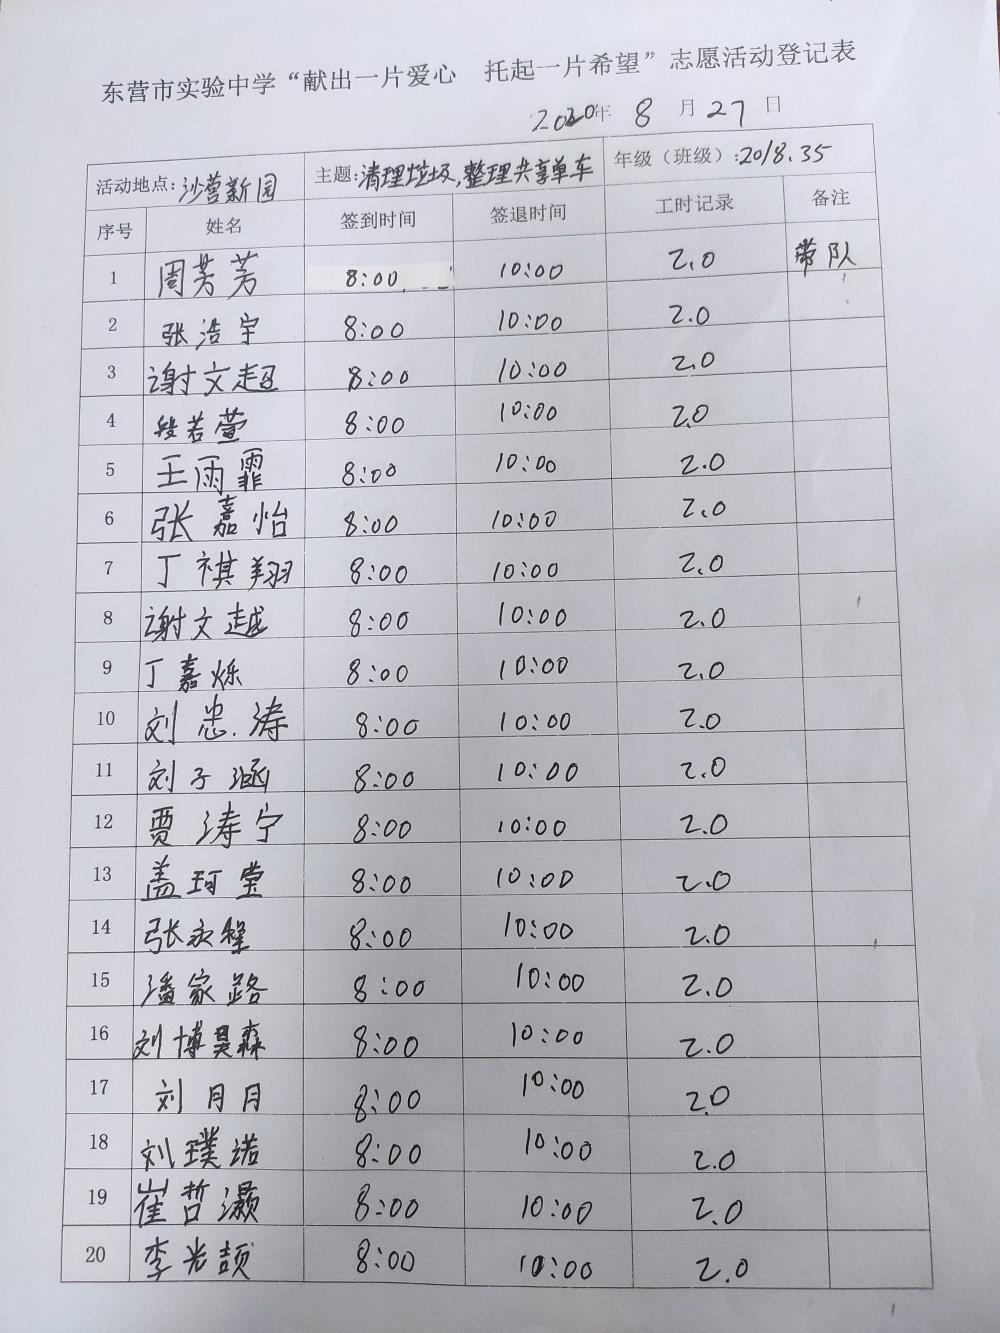 东营市实验中学“献出一片爱心 托起一片希望”志愿活动登记表
2020年 8 月 27 日
活动地点:沙营新园 主题:清理垃圾,整理共享单车 年级（班级）:2018.35
序号 姓名 签到时间 签退时间 工时记录 备注
1 周芳芳 8:00 10:00 2.0 带队
2 张浩宇 8:00 10:00 2.0
3 谢文超 8:00 10:00 2.0
4 段若萱 8:00 10:00 2.0
5 王雨霏 8:00 10:00 2.0
6 张嘉怡 8:00 10:00 2.0
7 丁祺翔 8:00 10:00 2.0
8 谢文越 8:00 10:00 2.0
9 丁嘉烁 8:00 10:00 2.0
10 刘忠涛 8:00 10:00 2.0
11 刘子涵 8:00 10:00 2.0
12 贾涛宁 8:00 10:00 2.0
13 盖珂莹 8:00 10:00 2.0
14 张永 8:00 10:00 2.0
15 潘家路 8:00 10:00 2.0
16 刘博昊森 8:00 10:00 2.0
17 刘月月 8:00 10:00 2.0
18 刘璞诺 8:00 10:00 2.0
19 崔哲灏 8:00 10:00 2.0
20 李光颉 8:00 10:00 2.0